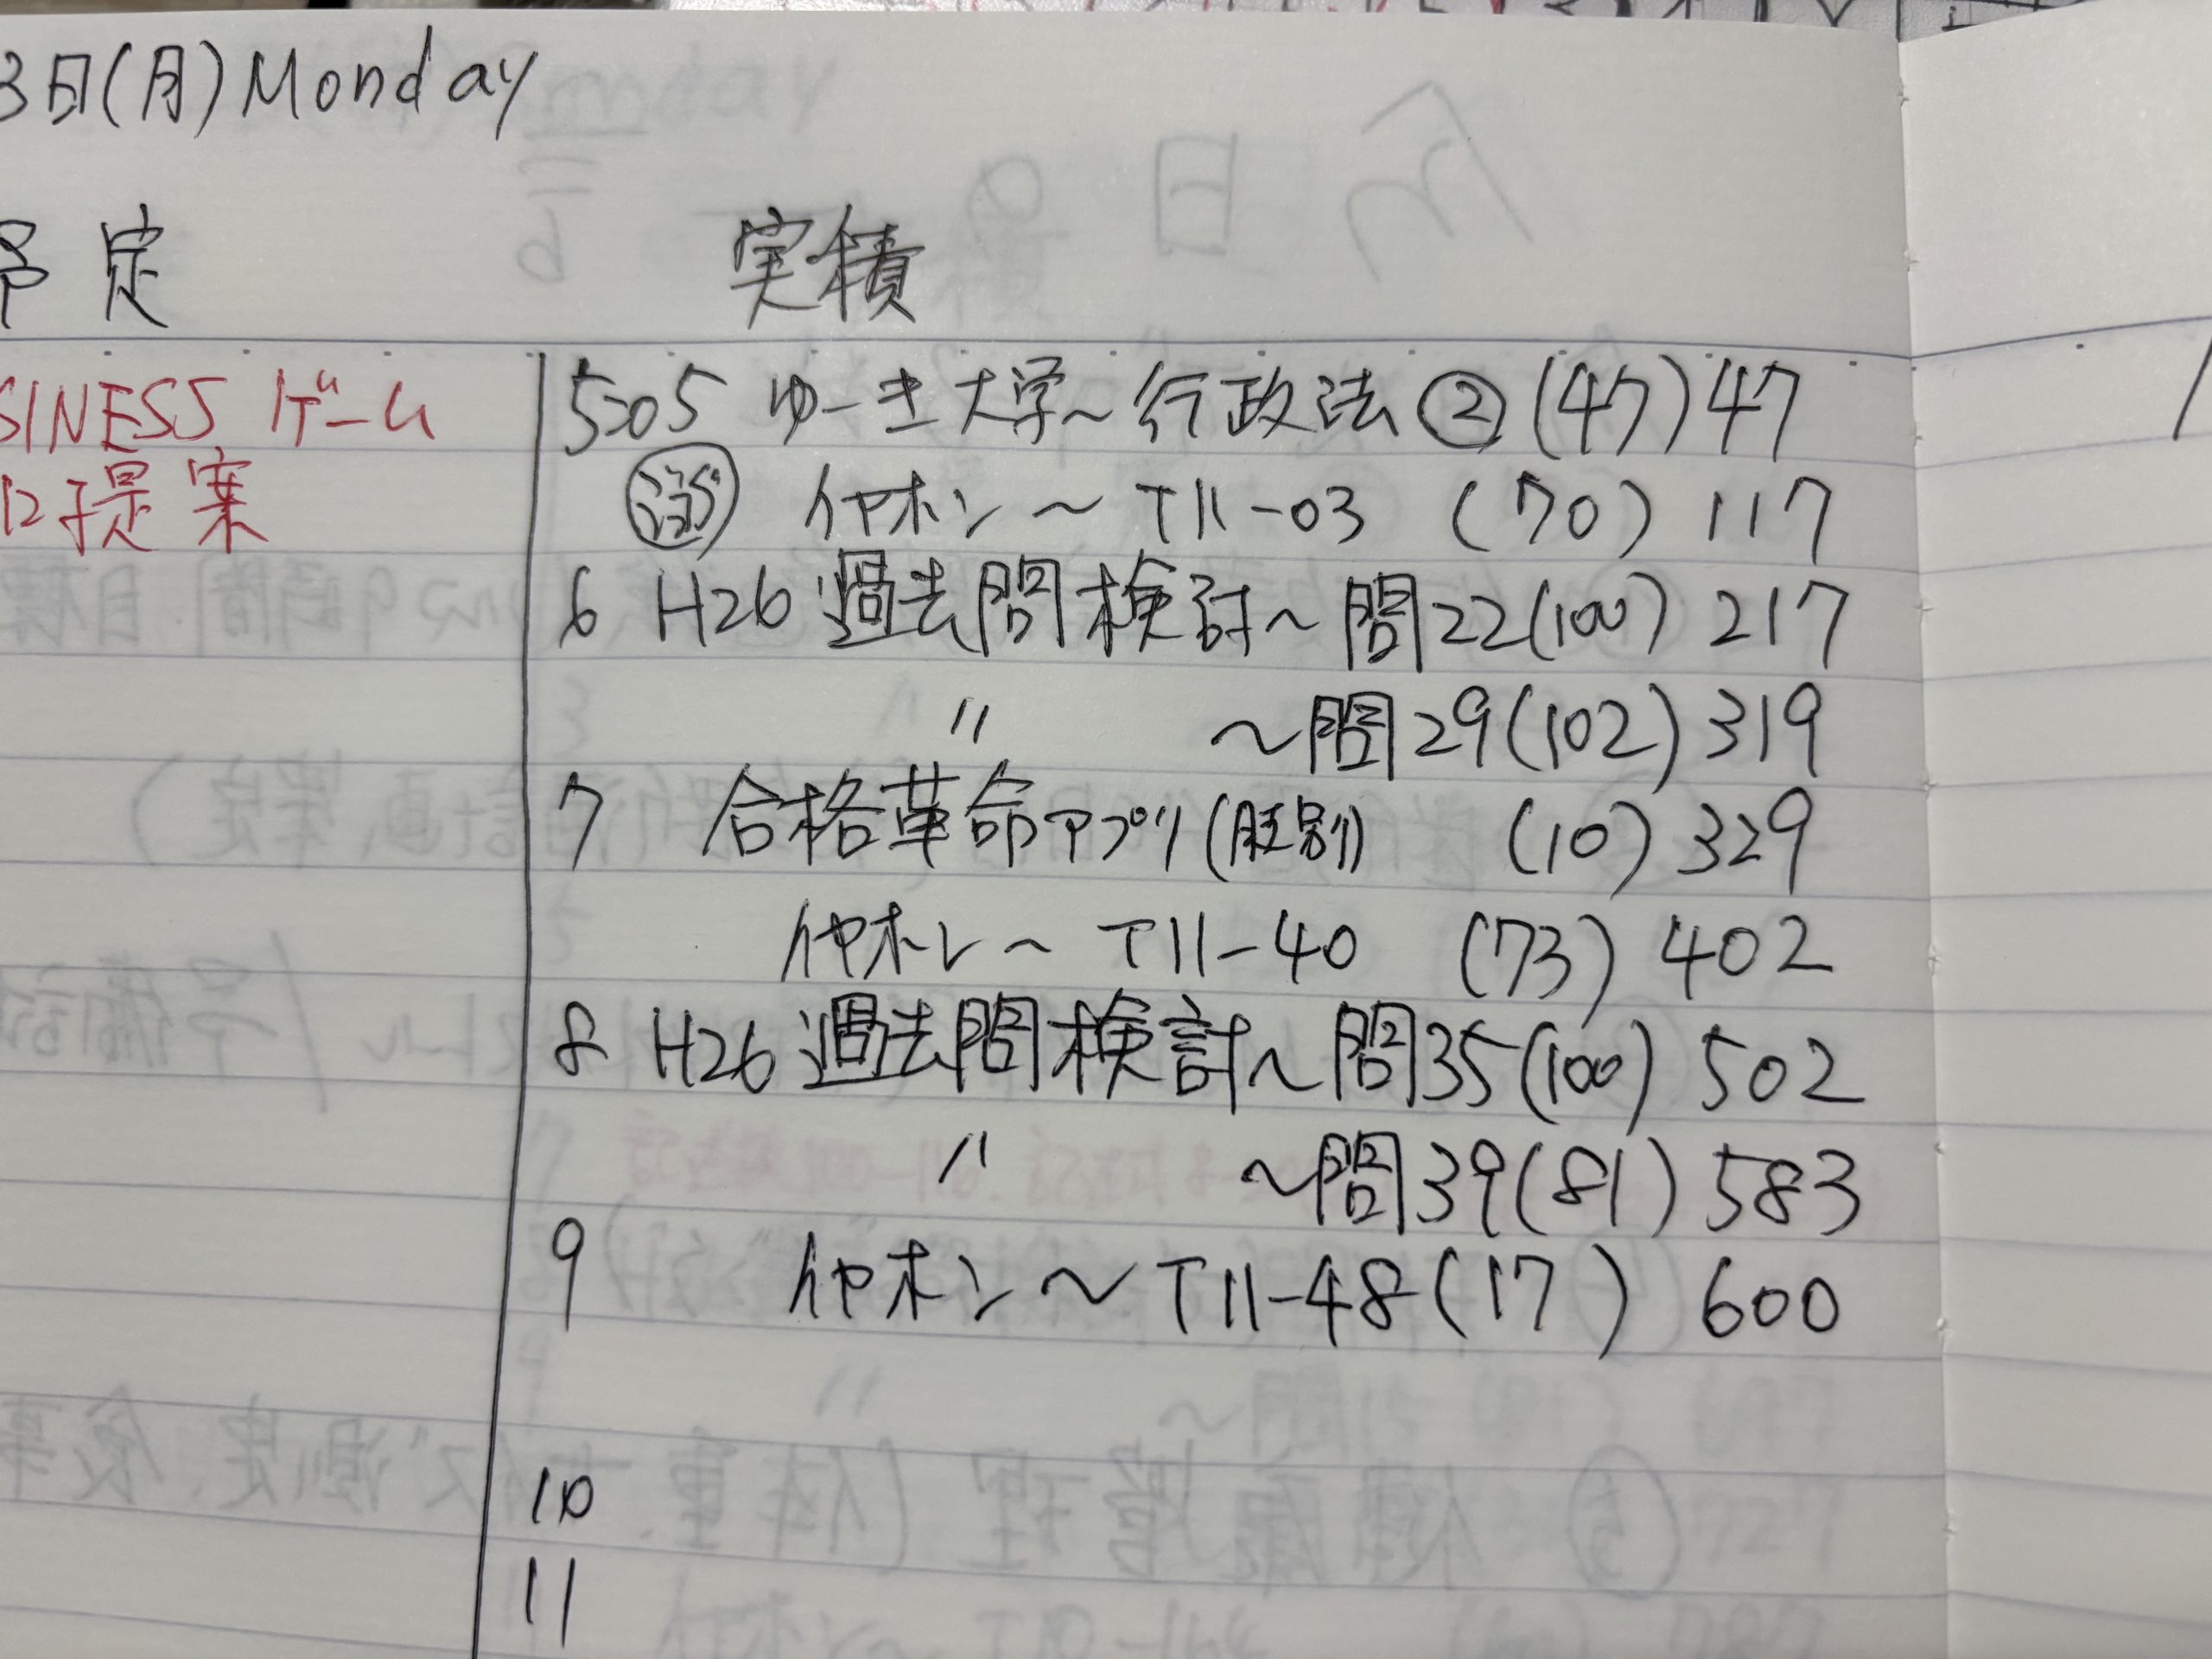 3日(月) Monday
予定 実積
SINESS ゲーム
ロ提案
5:05 ゆーき大学～行政法② (47) 47
イヤホン～T11-03 (70) 117
6 H26 過去問検討～問22 (100) 217
〃 ～問29 (102) 319
7 合格革命アプリ (肢別) (10) 329
イヤホン～T11-40 (73) 402
8 H26 過去問検討～問35 (100) 502
〃 ～問39 (81) 583
9 イヤホン～T11-48 (17) 600
10
11